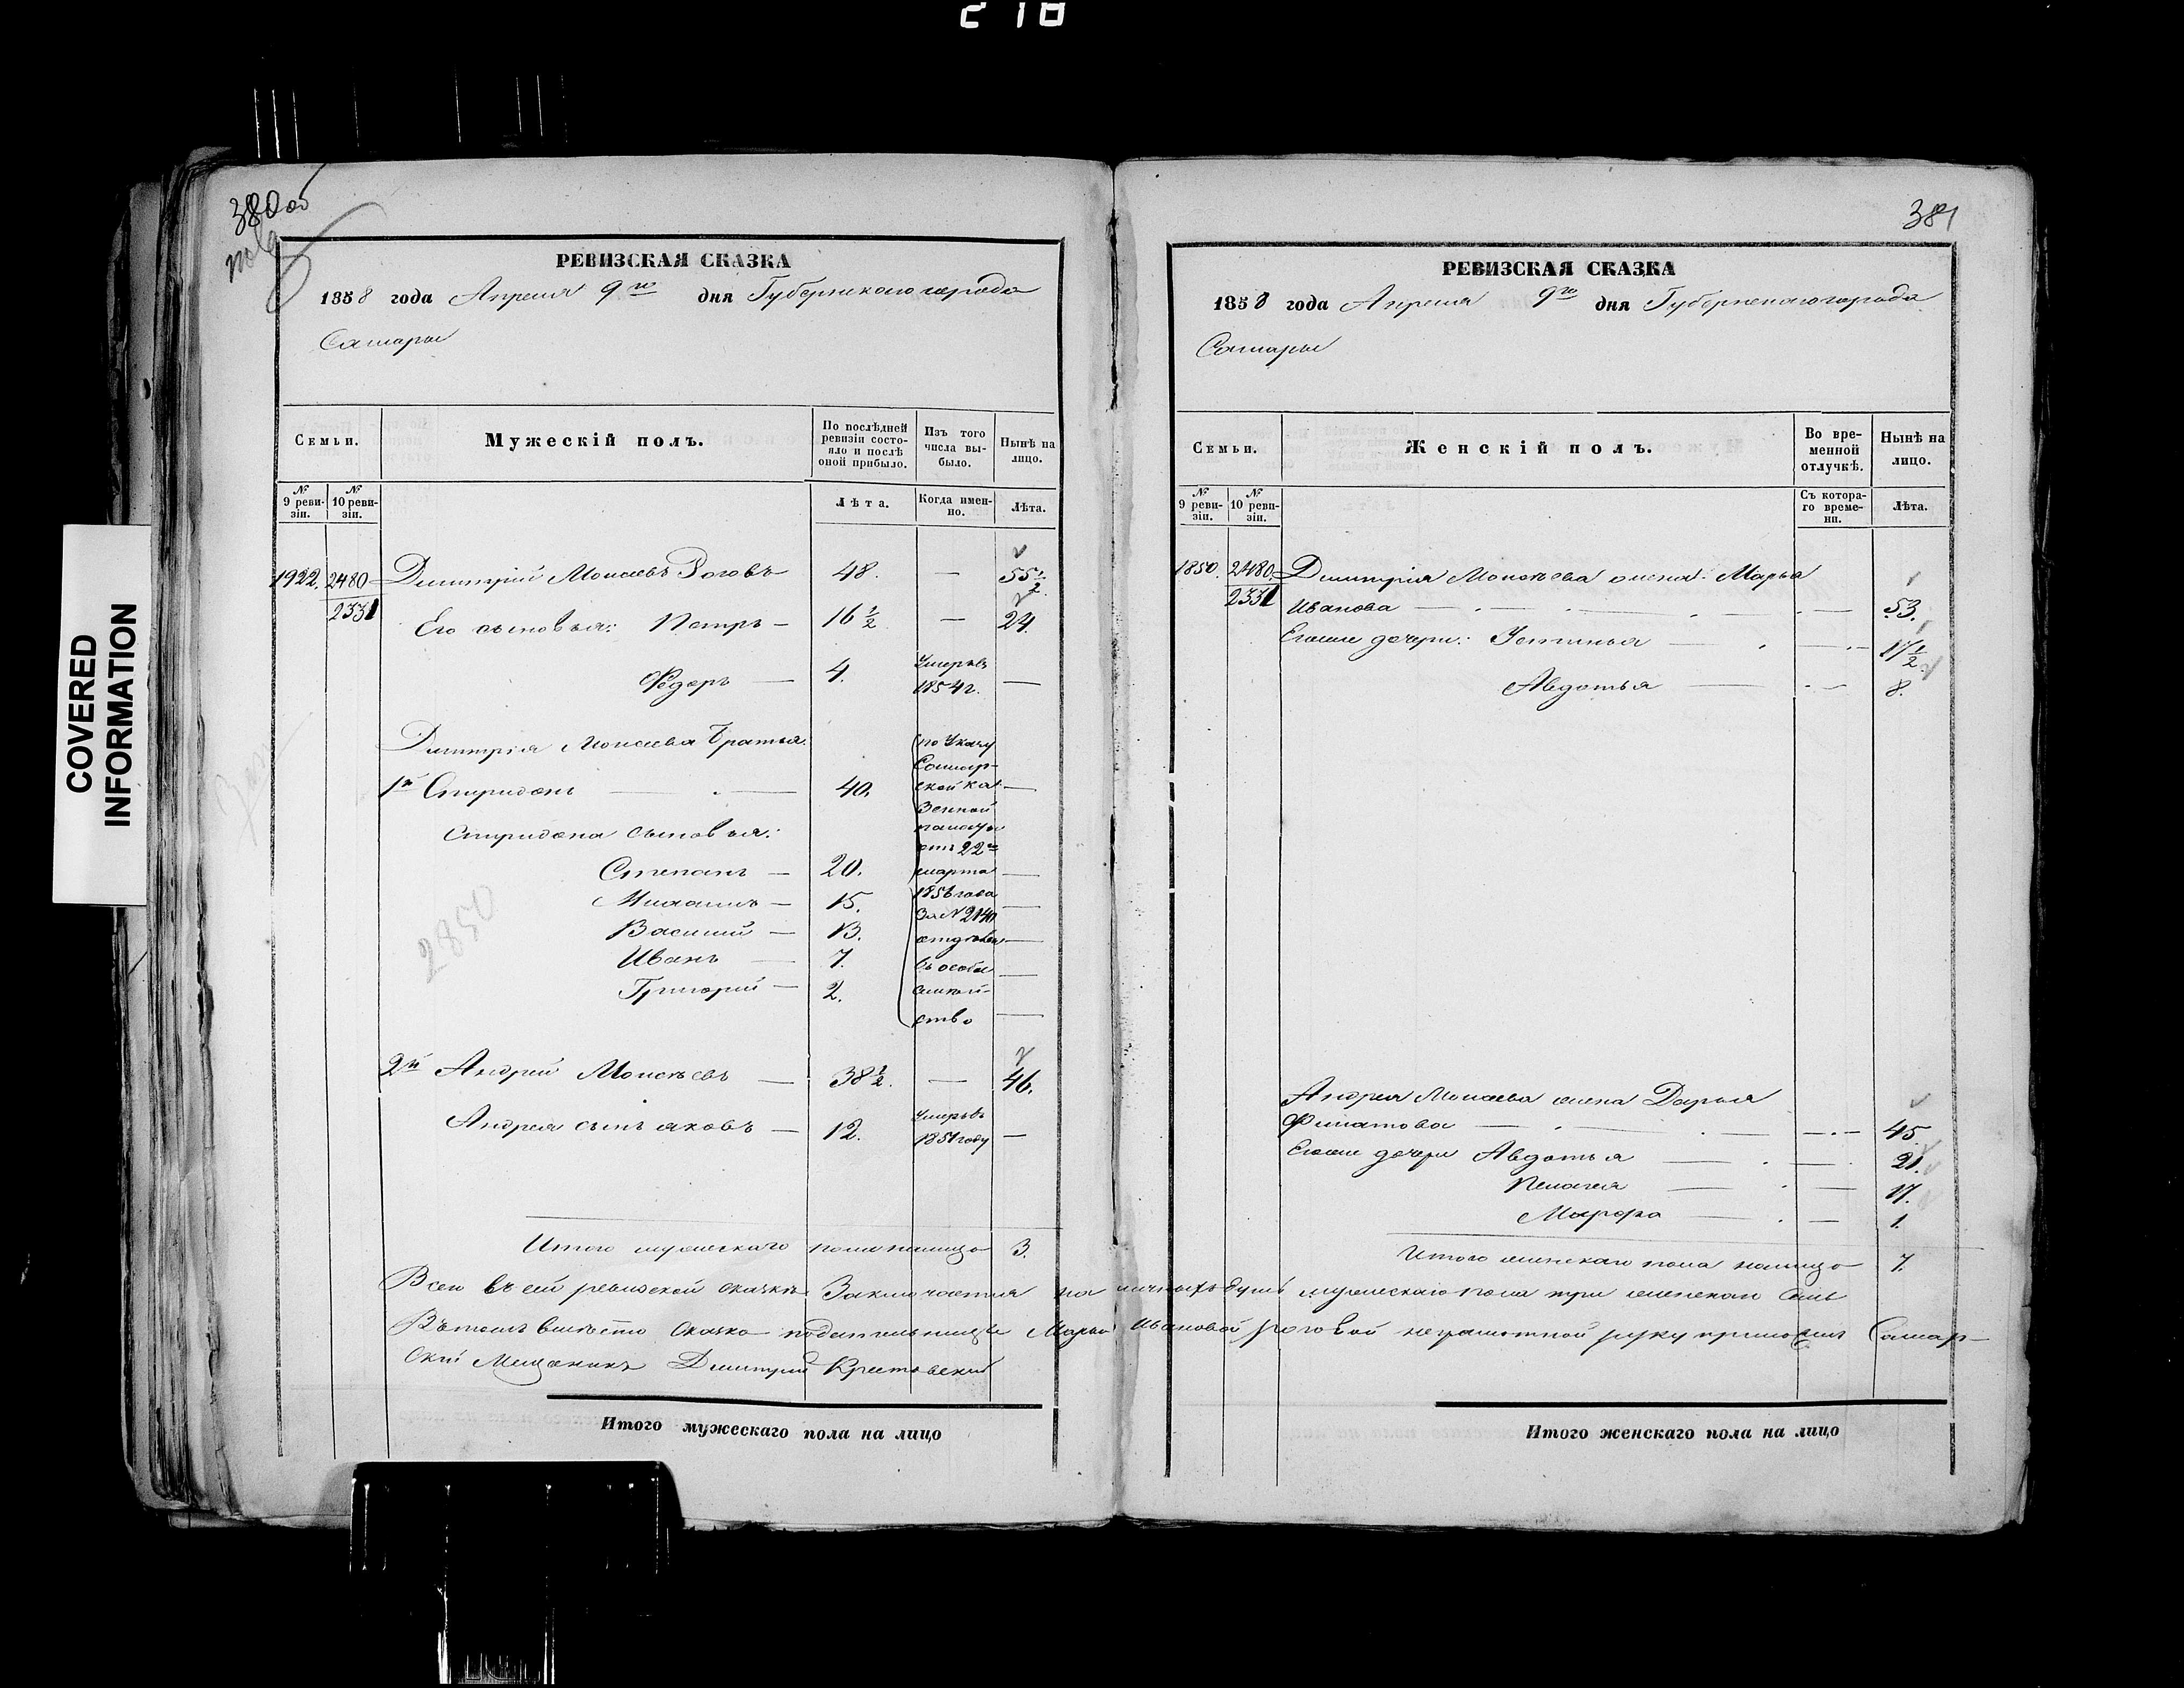 218
380 об
РЕВИЗСКАЯ СКАЗКА
1858 года Апреля 9го дня Губернскаго города
Самары
Семьи.
Мужескій полъ.
По послѣдней ревизіи состояло и послѣ оной прибыло.
Изъ того числа выбыло.
Нынѣ на лицо.
№ 9 ревизіи.
№ 10 ревизіи.
Лѣта.
Когда именно.
Лѣта.
1922. 2480 Димитрій Моисеевъ Роговъ 48. — 55 1/2
2331 Его сыновья: Петръ — 16 1/2 — 24.
Ѳедоръ — 4. Умеръ въ 1854 г. —
Димитрія Моисеева братья:
1й Спиридонъ — 40. —
Спиридона сыновья:
Степанъ — 20. —
Михаилъ — 15. —
Василий — 13. —
Иванъ — 7. —
Григорий — 2. —
по Указу
Самар-
ской ка-
зенной
палаты
отъ 22го
марта
1856 года
за № 2140
въ особое
семей-
ство
2й Андрей Моисѣевъ — 38 1/2. — 46.
Андрея сынъ яковъ — 12. Умеръ въ 1851 году —
Итого мужескаго пола налицо 3.
COVERED
INFORMATION
2850
381
РЕВИЗСКАЯ СКАЗКА
1858 года Апреля 9го дня Губернскаго города
Самары
Семьи.
Женскій полъ.
Во временной отлучкѣ.
Нынѣ на лицо.
№ 9 ревизіи.
№ 10 ревизіи.
Съ котораго времени.
Лѣта.
1850. 2480. Димитрія Моисѣева жена: Марья
2331 Иванова — 53.
Егоже дочери: Устинья — 17 1/2.
Авдотья — 8.
Андрея Моисеева жена Дарья
Филатова — 45.
Егоже дочери Авдотья — 21.
Пелагея — 17.
Марфа — 1.
Итого женскаго пола налицо 7.
Всего въ сей ревизской сказкѣ Заключается наличныхъ душъ мужескаго пола три женскаго семь
Въ томъ вместо сказкоподательницы Марьи Ивановой Роговой неграмотной руку приложилъ Самар-
ский Мещанинъ Димитрий Крестовский
Итого мужескаго пола на лицо
Итого женскаго пола на лицо